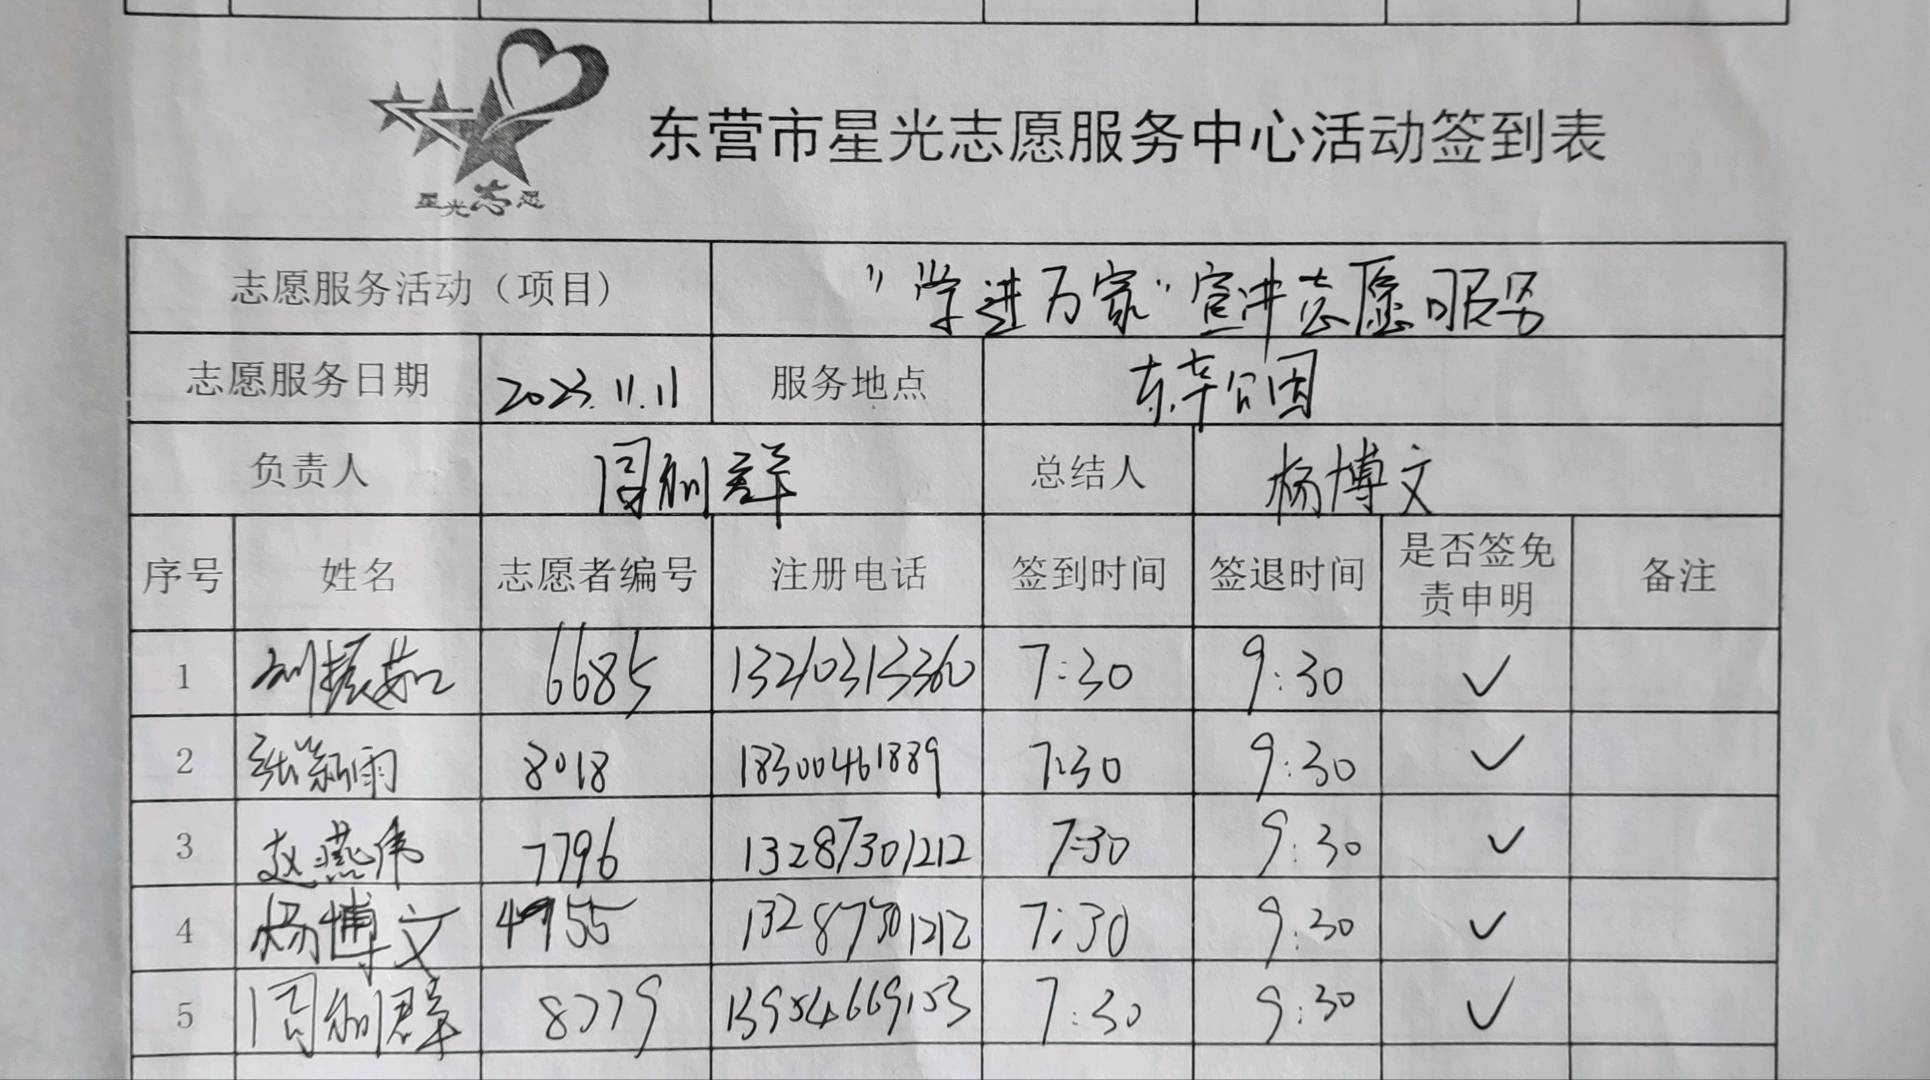 星光志愿
东营市星光志愿服务中心活动签到表
志愿服务活动（项目） "学进万家"宣讲志愿服务
志愿服务日期 2023.11.11 服务地点 东辛公园
负责人 周利群 总结人 杨博文
序号 姓名 志愿者编号 注册电话 签到时间 签退时间 是否签免责申明 备注
1 刘振茹 6685 13210313360 7:30 9:30 ✓
2 张新雨 8018 18300461889 7:30 9:30 ✓
3 赵燕伟 7796 13287301212 7:30 9:30 ✓
4 杨博文 4955 13287301212 7:30 9:30 ✓
5 周利群 8779 13954669153 7:30 9:30 ✓